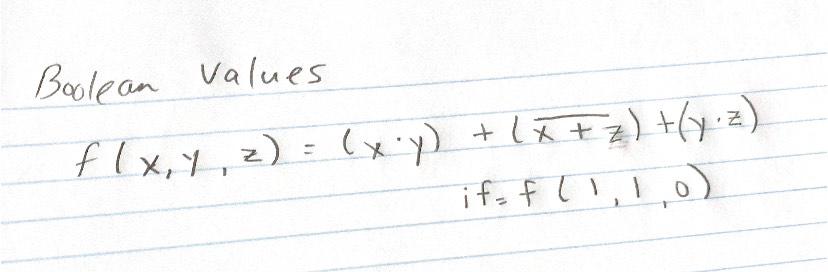 Boolean values
f(x, y, z) = (x·y) + (x̅ ̅+̅ ̅z̅) + (y·z)
if = f(1, 1, 0)